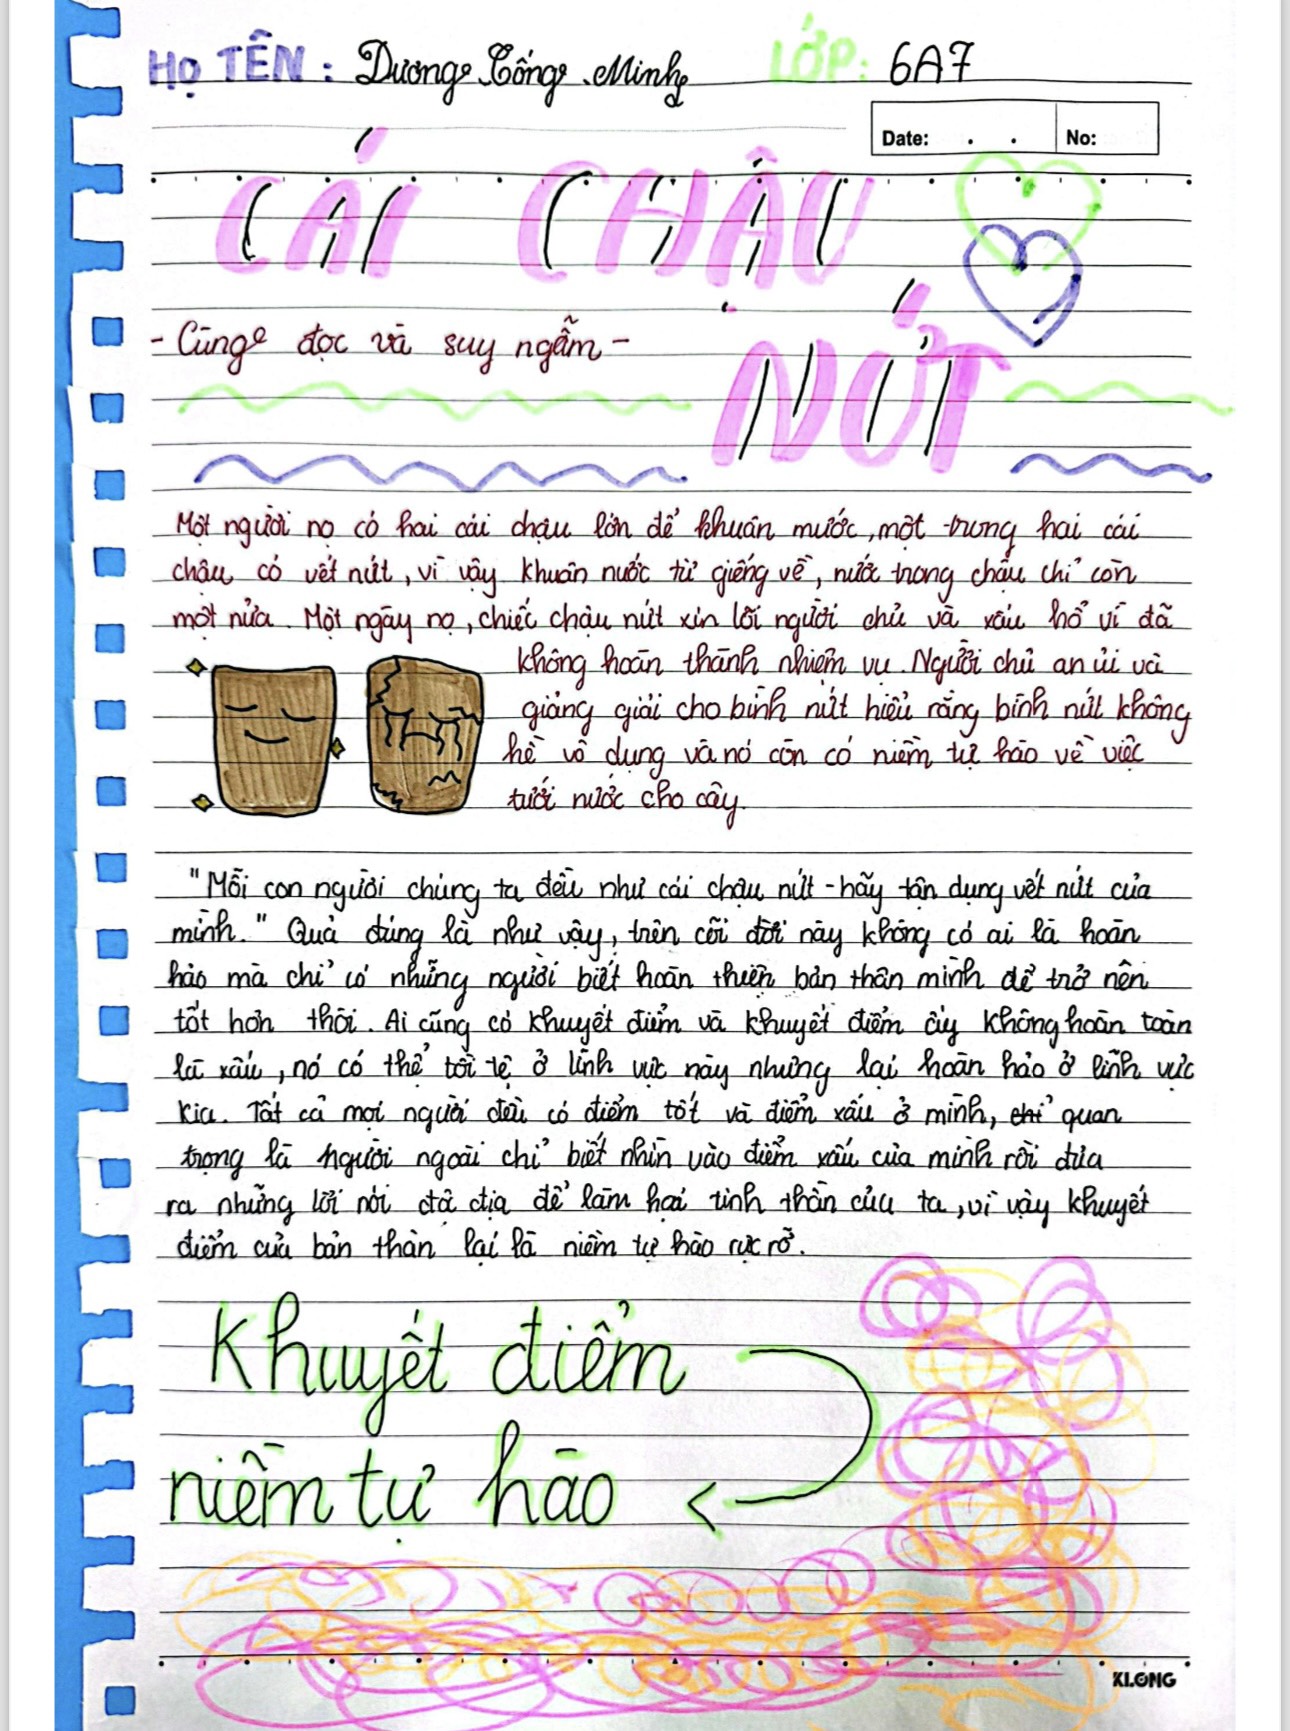 HỌ TÊN : Dương Công Minh LỚP: 6A7
Date: . . No:
CÁI CHẬU
NỨT
- Cùng đọc và suy ngẫm -
Một người nọ có hai cái chậu lớn để khuân mước, một trong hai cái
chậu có vết nứt, vì vậy khuân nước từ giếng về, nước trong chậu chỉ còn
một nửa. Một ngày nọ, chiếc chậu nứt xin lỗi người chủ và xấu hổ vì đã
không hoàn thành nhiệm vụ. Người chủ an ủi và
giảng giải cho bình nứt hiểu rằng bình nứt không
hề vô dụng và nó còn có niềm tự hào về việc
tưới nước cho cây.
"Mỗi con người chúng ta đều như cái chậu nứt - hãy tận dụng vết nứt của
mình." Quả đúng là như vậy, trên cõi đời này không có ai là hoàn
hảo mà chỉ có những người biết hoàn thiện bản thân mình để trở nên
tốt hơn thôi. Ai cũng có khuyết điểm và khuyết điểm ấy không hoàn toàn
là xấu, nó có thể tồi tệ ở lĩnh vực này nhưng lại hoàn hảo ở lĩnh vực
kia. Tất cả mọi người đều có điểm tốt và điểm xấu ở mình, chỉ quan
trọng là người ngoài chỉ biết nhìn vào điểm xấu của mình rồi đưa
ra những lời nói đả địa để làm hại tinh thần của ta, vì vậy khuyết
điểm của bản thân lại là niềm tự hào rực rỡ.
Khuyết điểm
niềm tự hào
KLONG